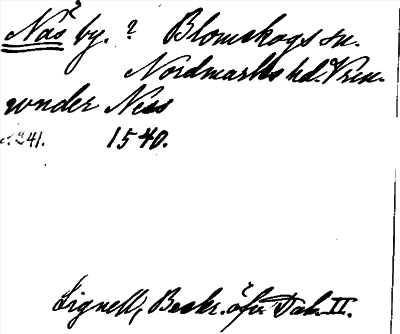 Näs by. ? Blomskogs sn.
Nordmarks hd. Vrm.
vonder Ness
s. 241. 1540.
Lignell, Beskr. öfver Dal. II.